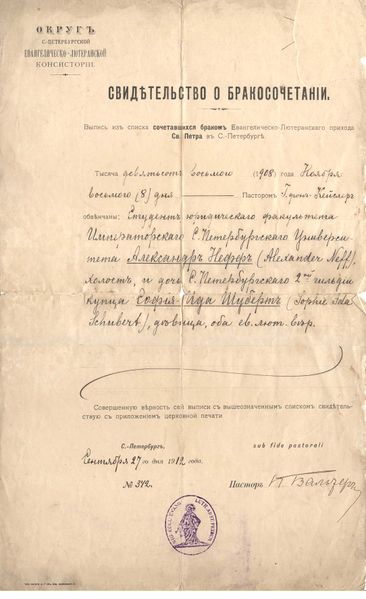 ОКРУГЪ
С.-ПЕТЕРБУРГСКОЙ
ЕВАНГЕЛИЧЕСКО-ЛЮТЕРАНСКОЙ
КОНСИСТОРІИ.
СВИДѢТЕЛЬСТВО О БРАКОСОЧЕТАНІИ.
Выпись изъ списка сочетавшихся бракомъ Евангелическо-Лютеранскаго прихода
Св. Петра въ С.-Петербургѣ.
Тысяча девятьсот восьмого (1908) года Ноября
восьмого (8) дня Пасторомъ Г. фонъ-Кейслер
обвѣнчаны: Студентъ юридическаго факультета
Императорскаго С. Петербургскаго Универси-
тета Александръ Неффъ (Alexander Neff),
холостъ, и дочь С. Петербургскаго 2-ой гильдіи
купца Софія-Ида Шубертъ (Sophie Ida
Schubert), дѣвица, оба ев. лют. вѣр.
Совершенную вѣрность сей выписи съ вышеозначеннымъ спискомъ свидѣтель-
ствую съ приложеніемъ церковной печати
С.-Петербургъ. sub fide pastorali
Сентября 27 го дня 1912 года.
№ 342. Пасторъ